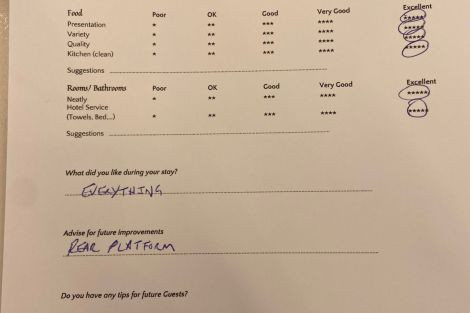 Food Poor OK Good Very Good Excellent
Presentation * ** *** **** *****
Variety * ** *** **** *****
Quality * ** *** **** *****
Kitchen (clean) * ** *** **** *****
Suggestions
Rooms/ Bathrooms Poor OK Good Very Good Excellent
Neatly * ** *** **** *****
Hotel Service
(Towels, Bed,...) * ** *** **** *****
Suggestions
What did you like during your stay?
EVERYTHING
Advise for future improvements
REAR PLATFORM
Do you have any tips for future Guests?